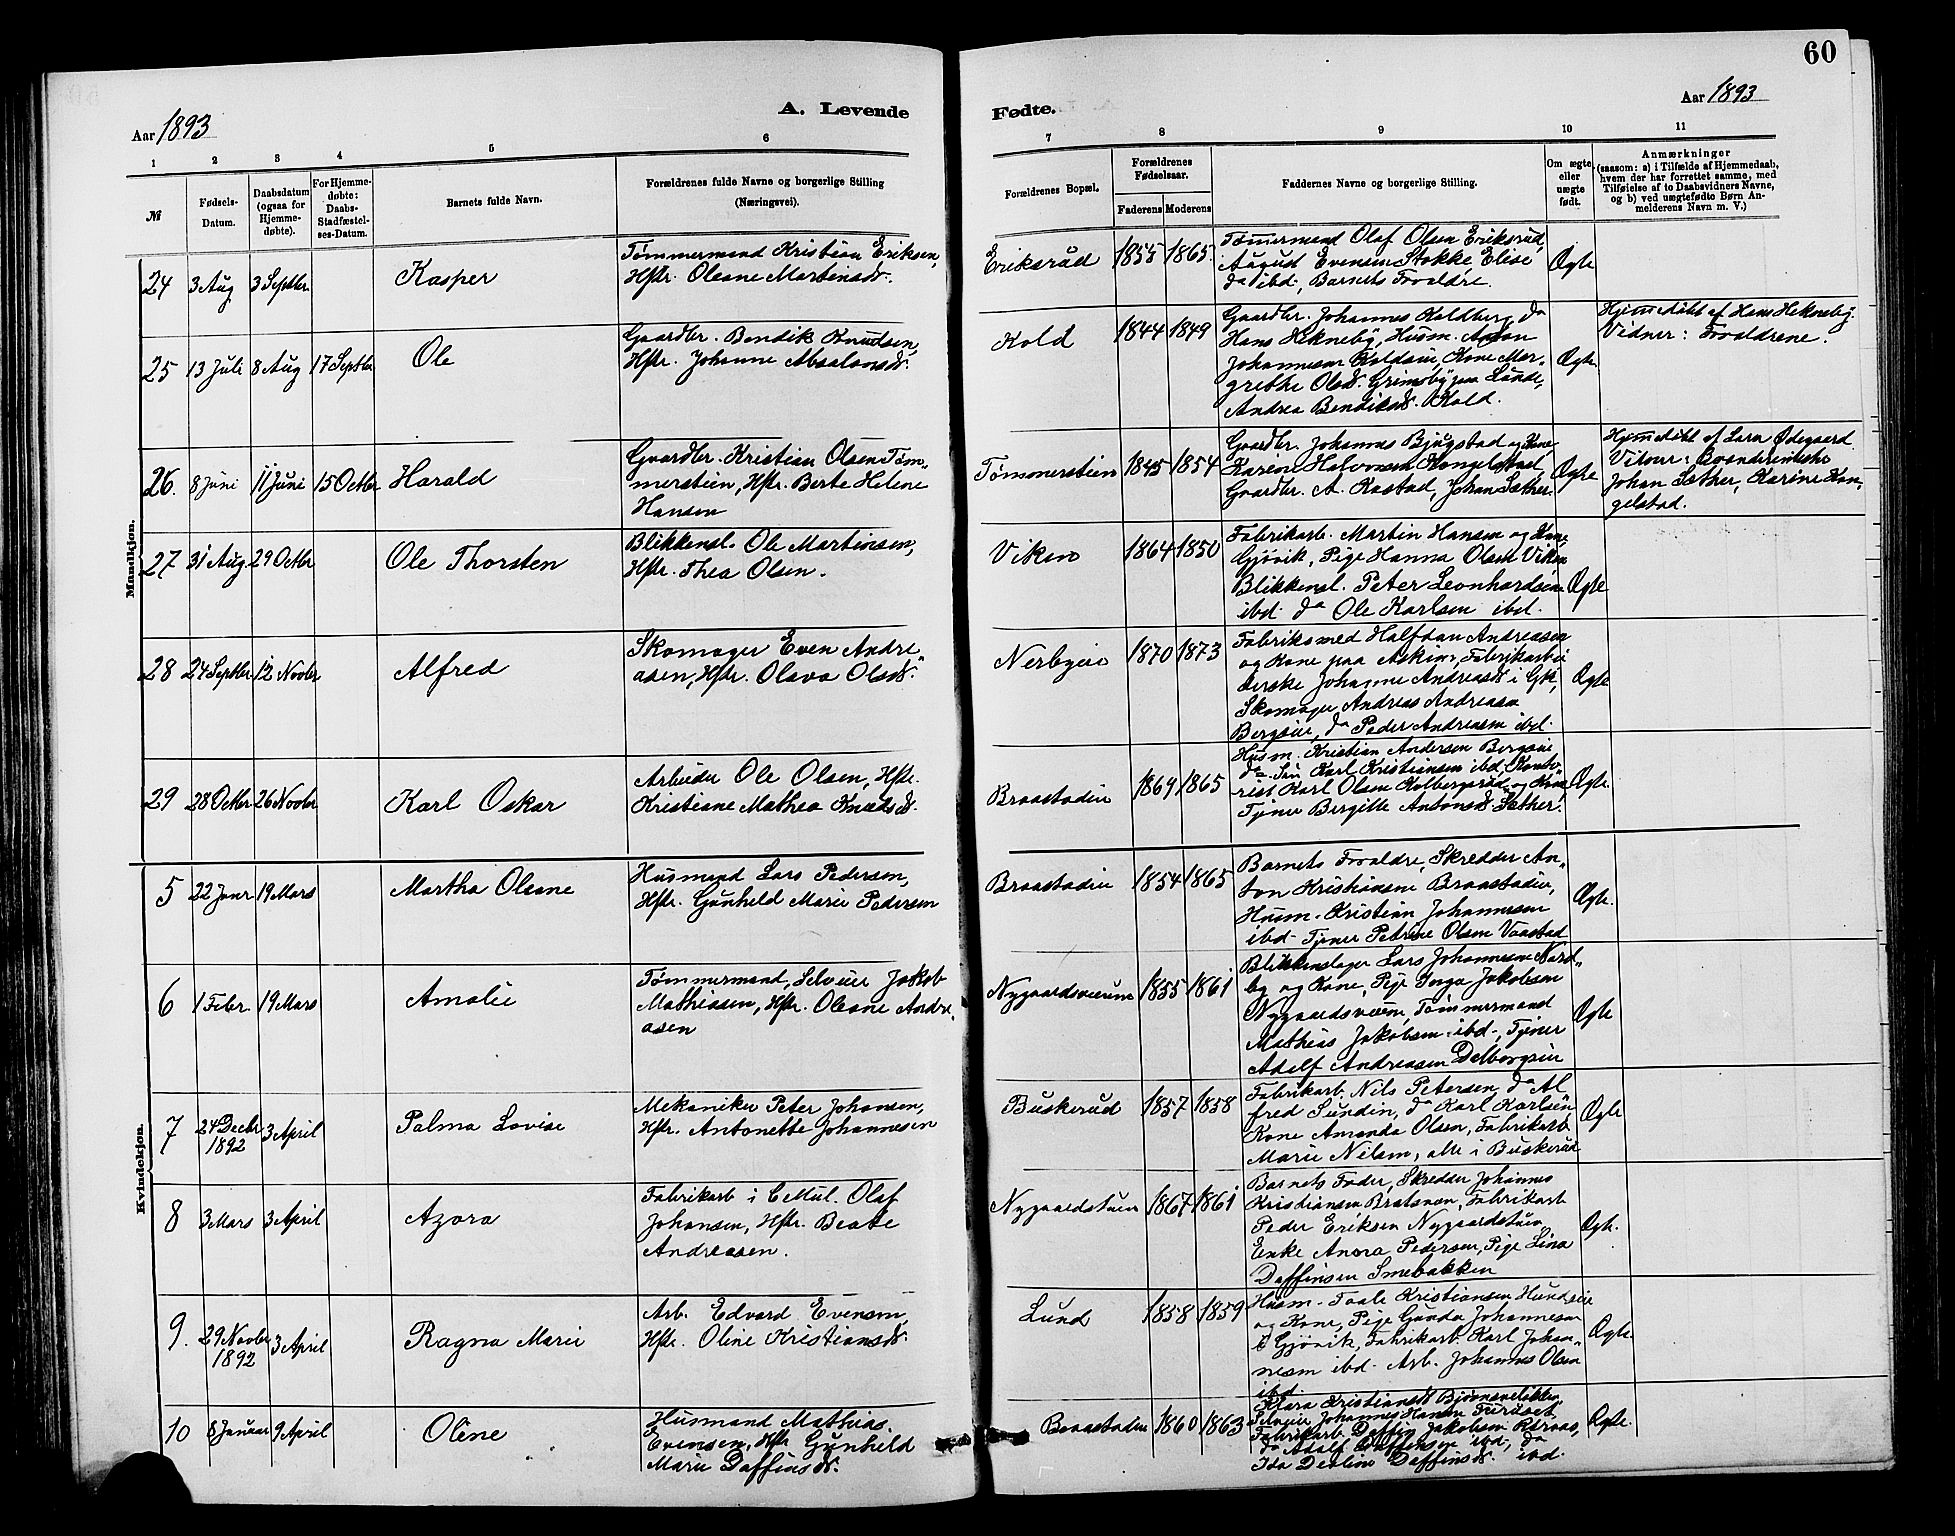 60
Aar 1893
A. Levende
Fødte.
Aar 1893
1 2 3 4 5 6 7 8 9 10 11
№
Fødsels-
Datum.
Daabsdatum
(ogsaa for
Hjemme-
døbte).
For Hjemme-
døbte:
Daabs-
Stadfæstel-
ses-Datum.
Barnets fulde Navn.
Forældrenes fulde Navne og borgerlige Stilling
(Næringsvei).
Forældrenes Bopæl.
Forældrenes
Fødselsaar.
Faderens Moderens
Faddernes Navne og borgerlige Stilling.
Om ægte
eller
uægte
født.
Anmærkninger
(saasom: a) i Tilfælde af Hjemmedaab,
hvem der har forrettet samme, med
Tilføielse af to Daabsvidners Navne,
og b) ved uægtefødte Børn An-
melderens Navn m. V.)
Mandkjøn.
24 3 Aug 3 Septbr Kasper
Tømmermand Kristian Eriksen,
Hstr. Oleane Martinsd.
Eriksrud 1855 1865.
Tømmermand Olaf Olsen Eriksrud,
August Evensen Stokke Elise
da ibd, Barnets Forældre.
Ægte
25 13 Juli 8 Aug 17 Septbr Ole
Gaardbr. Bendik Knudsen,
Hstr. Johanne Absalonsd.
Kold 1844 1849
Gaardbr. Johannes Koldberg, da
Hans Hekneby, Husm. Anton
Johannesen Koldseie, Kone Mar-
grethe Olsd. Grimsby paa Lunde,
Andrea Bendiksd. Kold.
Ægte.
Hjemmedøbt af Hans Hekneby.
Vidner: Forældrene.
26. 8 Juni 11 Juni 15 Octbr Harald
Gaardbr. Kristian Olsen Tøm-
merstien, Hstr. Berte Helene
Hansen
Tømmerstien 1845 1854
Gaardbr. Johannes Bjugstad og Kone
Karen Halvorsen Kongelstad,
Gaardbr. A. Rastad, Johan Sæther.
Ægte
Hjemmedøbt af Lara Ødegaard.
Johan Sæther, Karine Kon-
gelstad.
27 31 Aug 29 Octbr Ole Thorsten
Blikkensl. Ole Martinsen,
Hstr. Thea Olsen.
Viken 1864 1850
Fabrikarb. Martin Hansen og Kone
Gjøvik, Pige Hanna Olsen Viken
Blikkensl. Peter Leonhardsen
ibd. da Ole Karlsen ibd.
Ægte
28 24 Septbr 12 Novbr Alfred
Skomager Even Andre-
asen, Hstr. Olava Olsd.
Nerbyeie 1870 1873
Fabriksmed Halfdan Andreasen
og Kone paa Askim, Fabrikarbei
derske Johanne Andreasd i Gjk,
Skomager Andreas Andreasen
Bergseie, da Peder Andreasen ibd.
Ægte
29 28 Octbr 26 Novbr Karl Oskar
Arbeider Ole Olsen, Hstr.
Kristiane Mathea Knudsd.
Braastadeie 1869 1865
Husm. Kristian Andersen Bergseie,
da Søn Karl Kristiansen ibd, Konto-
rist Karl Olsen Kolbergsrud og Kone
Tjener Bergitte Antonsd. Sæther.
Ægte.
Kvindekjøn.
5 22 Janr. 19 Mars Martha Oleane
Husmand Lars Pedersen,
Hstr. Gunheld Marie Pedersen
Braastadeie 1854 1865
Barnets Forældre, Skredder An-
ton Kristiansen Braastadeie,
Husm. Kristian Johannesen
ibd. Tjener Petrine Olsen Vaastad
Ægte.
6 1 Febr. 19 Mars Amalie
Tømmermand, Selveier Jakob
Mathiasen, Hstr. Oleane Andre-
asen
Nygaardsveium 1855 1861
Blikkenslager Lars Johannesen Nord-
by og Kone, Pige Inga Jakobsen
Nygaardsveiem, Tømmermand
Mathias Jakobsen ibd., Tjener
Adolf Andreasen Delborgseie
Ægte
7 24 Decbr 1892 3 April Palma Lovise
Mekaniker Peter Johansen,
Hstr. Antonette Johannesen
Buskerud 1857 1858
Fabrikarb. Nils Petersen, da Al
fred Lundin, da Karl Karlsen
Kone Amanda Olsen, Fabrikarb.
Marie Nilsen, alle i Buskerud
Ægte
8 3 Mars 3 April Azora
Fabrikarb i C Mül. Olaf
Johansen, Hstr. Beate
Andreasen.
Nygaardstuen 1867 1861
Barnets Fader, Skredder Johannes
Kristiansen Bratsveen, Fabrikarb
Peder Eriksen Nygaardstuen,
Enke Anora Pedersen, Pige Lina
Daffinsen Smebakken
Ægte.
9. 29 Novbr 1892 3 April Ragna Marie
Arb. Edvard Evensen,
Hstr. Oline Kristiansd.
Lund 1858 1859
Husm. Taale Kristiansen Hundseie
og Kone, Pige Gunda Johannesen
Gjøvik, Fabrikarb. Karl Johan-
nesen ibd. Arb. Johannes Olsen
ibd.
Ægte.
10 8 Januar 9 April Oline
Husmand Mathias
Evensen, Hstr Gunheld
Marie Daffinsd.
Braastadeie 1860 1863
Klara Kristiansd. Bjørnsveløkken,
Selveier Johannes Hansen Furuset,
Fabrikarb. Daffin Jakobsen Raraas,
da Adolf Daffinsen ibd, da
Ida Daffinsd. ibd.
Ægte.